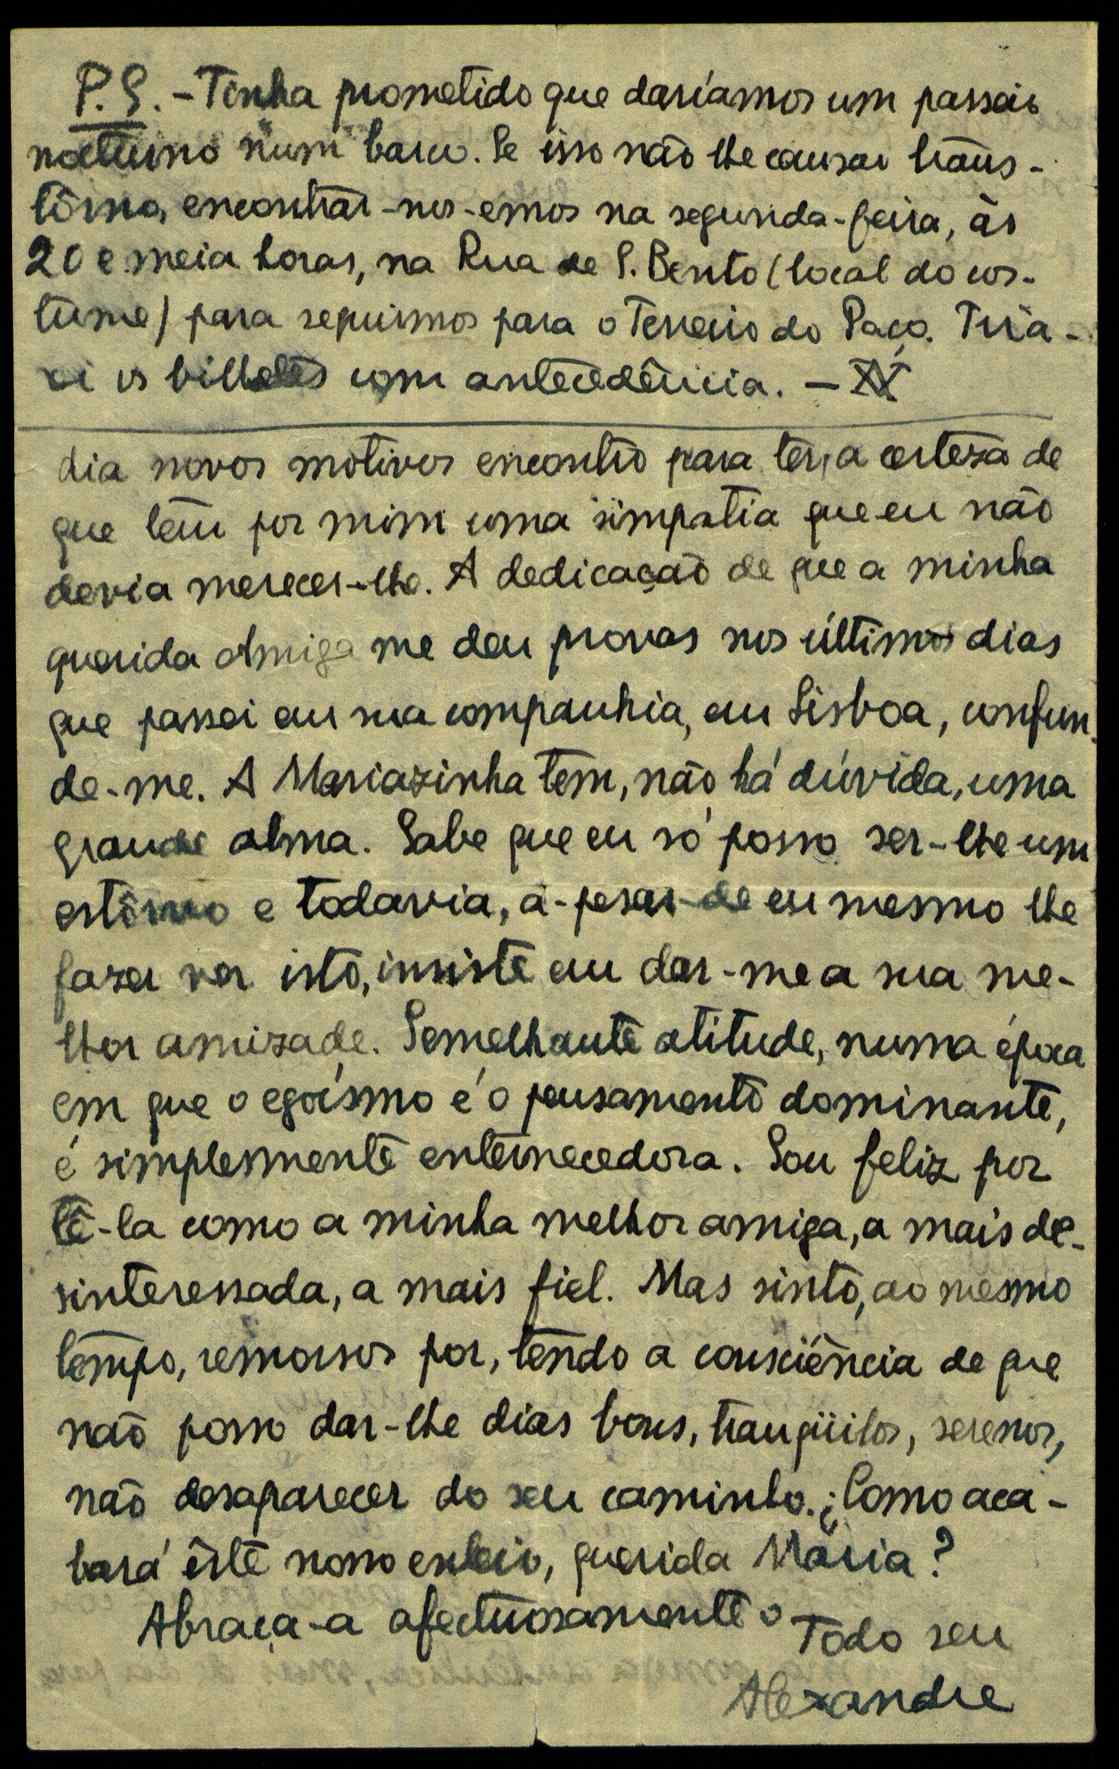 P.S. - Tinha prometido que daríamos um passeio
nocturno num barco. Se isso não lhe causar trans-
tôrno, encontrar-nos-emos na segunda-feira, às
20 e meia horas, na Rua de S. Bento (local do cos-
tume) para seguirmos para o Terreiro do Paço. Tira-
rei os bilhetes com antecedência. -
dia novos motivos encontro para ter, a certeza de
que tem por mim uma simpatia que eu não
devia merecer-lhe. A dedicação de que a minha
querida Amiga me deu provas nos últimos dias
que passei em sua companhia, em Lisboa, confun-
de-me. A Mariazinha tem, não há dúvida, uma
grande alma. Sabe que eu só posso ser-lhe um
estôrvo e todavia, a-pesar-de eu mesmo lhe
fazer ver isto, insiste em dar-me a sua me-
lhor amizade. Semelhante atitude, numa época
em que o egoísmo é o pensamento dominante,
é simplesmente enternecedora. Sou feliz por
tê-la como a minha melhor amiga, a mais de-
sinteressada, a mais fiel. Mas sinto, ao mesmo
tempo, remorsos por, tendo a consciência de que
não posso dar-lhe dias bons, tranqüilos, serenos,
não desaparecer do seu caminho. ¿Como aca-
bará êste nosso enleio, querida Maria?
Abraça-a afectuosamente o
Todo seu
Alexandre